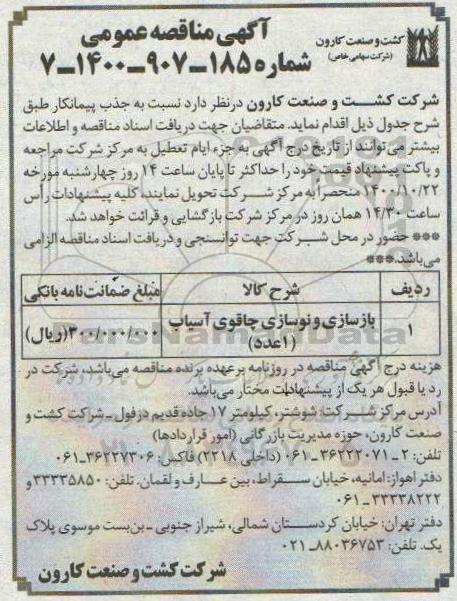 کشت و صنعت کارون
(شرکت سهامی خاص)
آگهی مناقصه عمومی
شماره ۱۸۵-۹۰۷-۱۴۰۰-۷
شرکت کشت و صنعت کارون درنظر دارد نسبت به جذب پیمانکار طبق
شرح جدول ذیل اقدام نماید. متقاضیان جهت دریافت اسناد مناقصه و اطلاعات
بیشتر می‌توانند از تاریخ درج آگهی به جزء ایام تعطیل به مرکز شرکت مراجعه
و پاکت پیشنهاد قیمت خود را حداکثر تا پایان ساعت ۱۴ روز چهارشنبه مورخه
۱۴۰۰/۱۰/۲۲ منحصراً به مرکز شرکت تحویل نمایند، کلیه پیشنهادات رأس
ساعت ۱۴/۳۰ همان روز در مرکز شرکت بازگشایی و قرائت خواهد شد.
*** حضور در محل شرکت جهت توانسنجی و دریافت اسناد مناقصه الزامی
می‌باشد.***
ردیف شرح کالا مبلغ ضمانت‌نامه بانکی
۱ بازسازی و نوسازی چاقوی آسیاب ۳۰۰/۰۰۰/۰۰۰(ریال)
(۱عدد)
هزینه درج آگهی مناقصه در روزنامه برعهده برنده مناقصه می‌باشد، شرکت در
رد یا قبول هر یک از پیشنهادات مختار می‌باشد.
آدرس مرکز شرکت: شوشتر، کیلومتر ۱۷ جاده قدیم دزفول ـ شرکت کشت و
صنعت کارون، حوزه مدیریت بازرگانی (امور قراردادها)
تلفن: ۲ـ۳۶۲۲۲۰۷۱ـ۰۶۱ (داخلی ۲۲۱۸) فاکس: ۳۶۲۲۷۳۰۶ـ۰۶۱
دفتر اهواز: امانیه، خیابان سقراط، بین عارف و لقمان. تلفن: ۳۳۳۳۵۸۵۰ و
۳۳۳۳۸۲۲۲ـ۰۶۱
دفتر تهران: خیابان کردستان شمالی، شیراز جنوبی ـ بن‌بست موسوی پلاک
یک. تلفن: ۸۸۰۳۶۷۵۳ـ۰۲۱
شرکت کشت و صنعت کارون